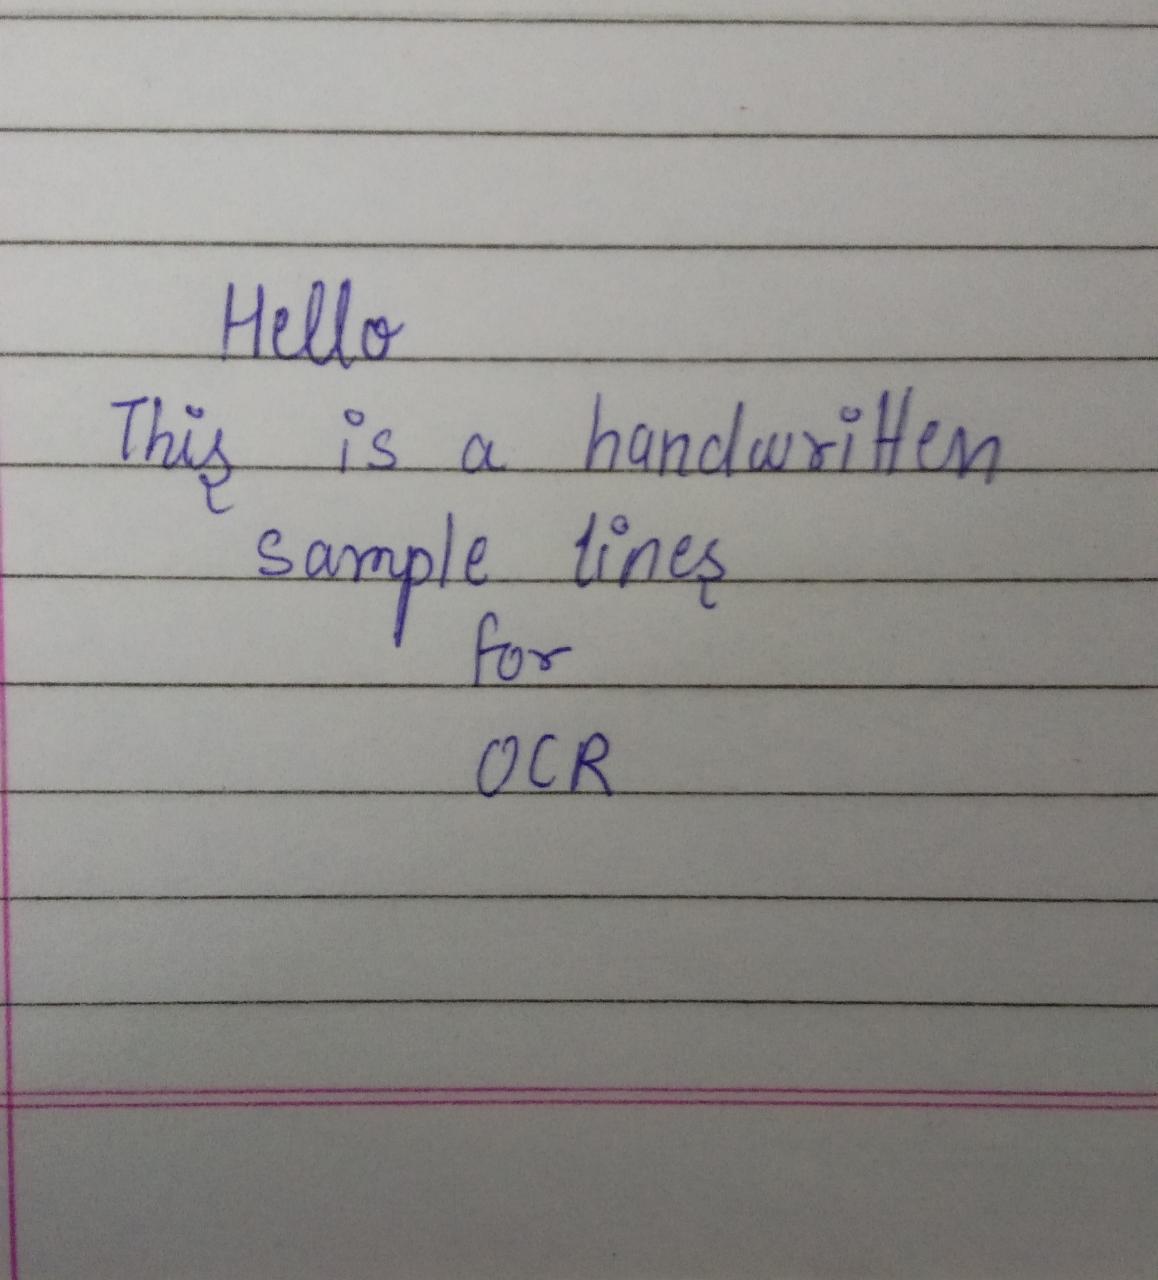 Hello
This is a handwritten
sample lines
for
OCR